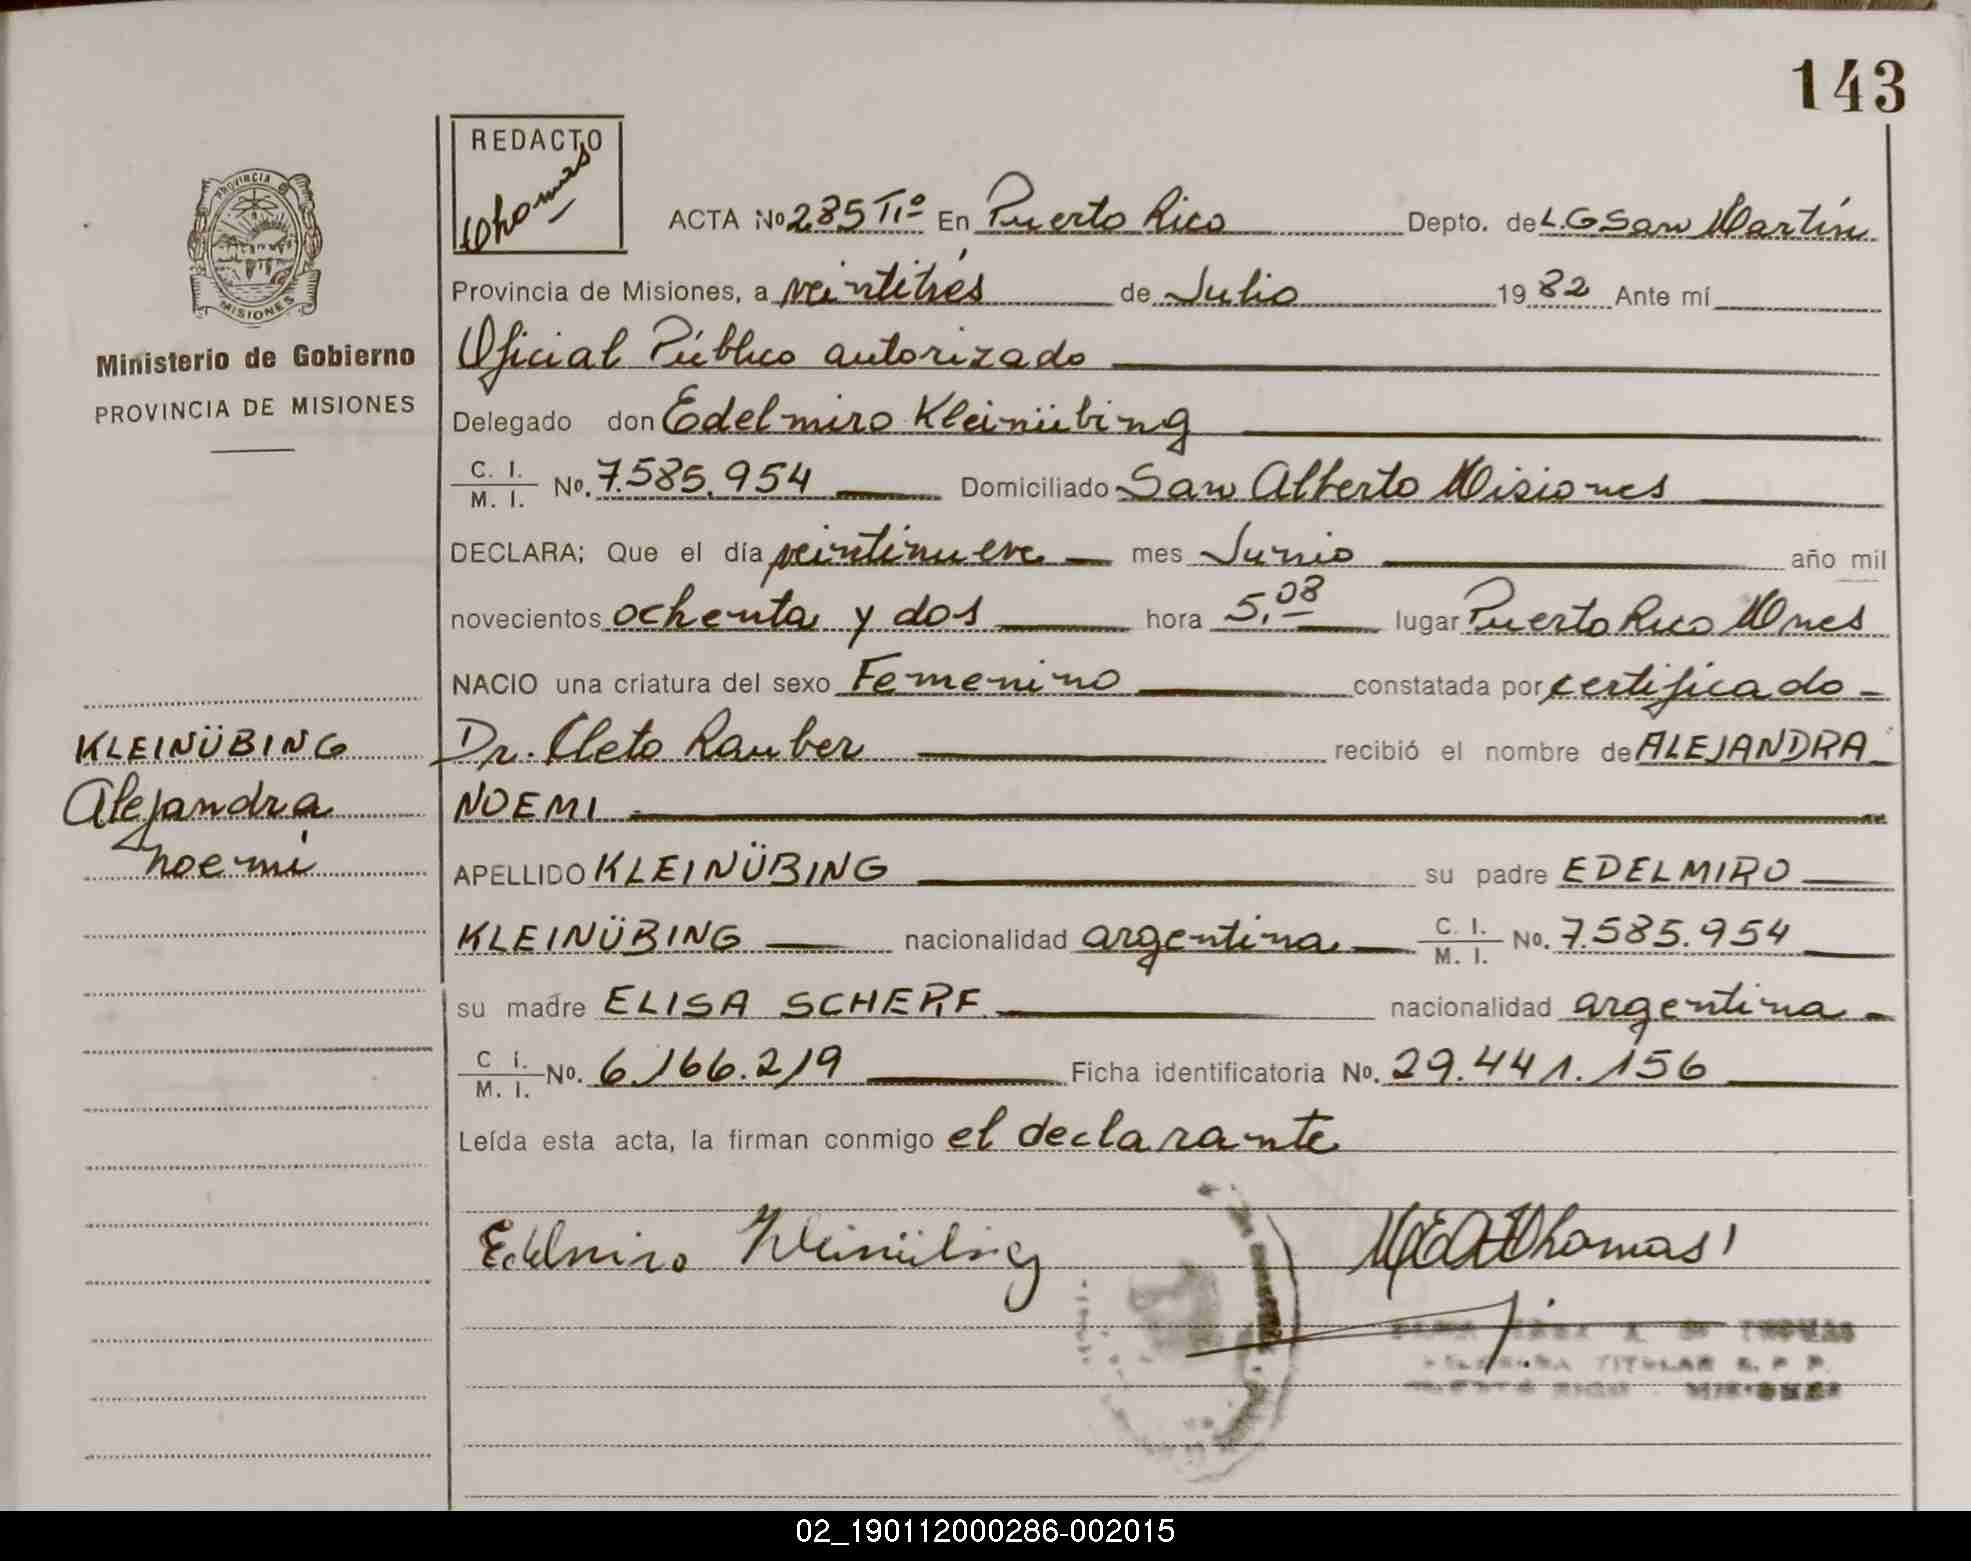 143
REDACTO
Thomas
PROVINCIA DE
MISIONES
ACTA No 285 Tº En Puerto Rico Depto. de L.G San Martín
Provincia de Misiones, a veintitrés de Julio 1982 Ante mí
Oficial Público autorizado
Ministerio de Gobierno
PROVINCIA DE MISIONES
Delegado don Edelmiro Kleinübing
C. I. / M. I. No. 7.585.954 Domiciliado San Alberto Misiones
DECLARA; Que el día veintinueve mes Junio año mil
novecientos ochenta y dos hora 5,08 lugar Puerto Rico Mnes
NACIO una criatura del sexo Femenino constatada por certificado
KLEINÜBING
Alejandra
Noemi
Dr. Cleto Rauber recibió el nombre de ALEJANDRA
NOEMI
APELLIDO KLEINÜBING su padre EDELMIRO
KLEINÜBING nacionalidad argentina C. I. / M. I. No. 7.585.954
su madre ELISA SCHERF nacionalidad argentina
C I. / M. I. No. 6.166.219 Ficha identificatoria No. 29.441.156
Leída esta acta, la firman conmigo el declarante
Edelmiro Kleinübing
Thomas
THOMAS
TITULAR R. P. P.
PUERTO RICO - MISIONES
02_190112000286-002015